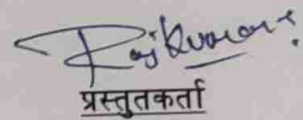 Rajkumar
प्रस्तुतकर्ता